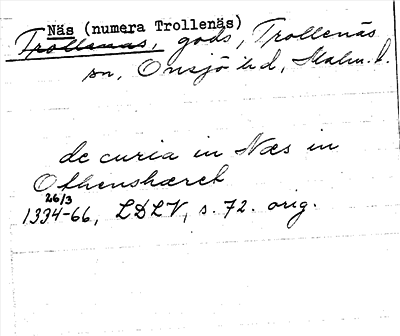 Näs (numera Trollenäs)
Trollenäs, gods, Trollenäs
sn, Onsjö hd, Malm. l.
de curia in Næs in
Othenshæret
26/3
1334-66, LDLV, s. 72. orig.